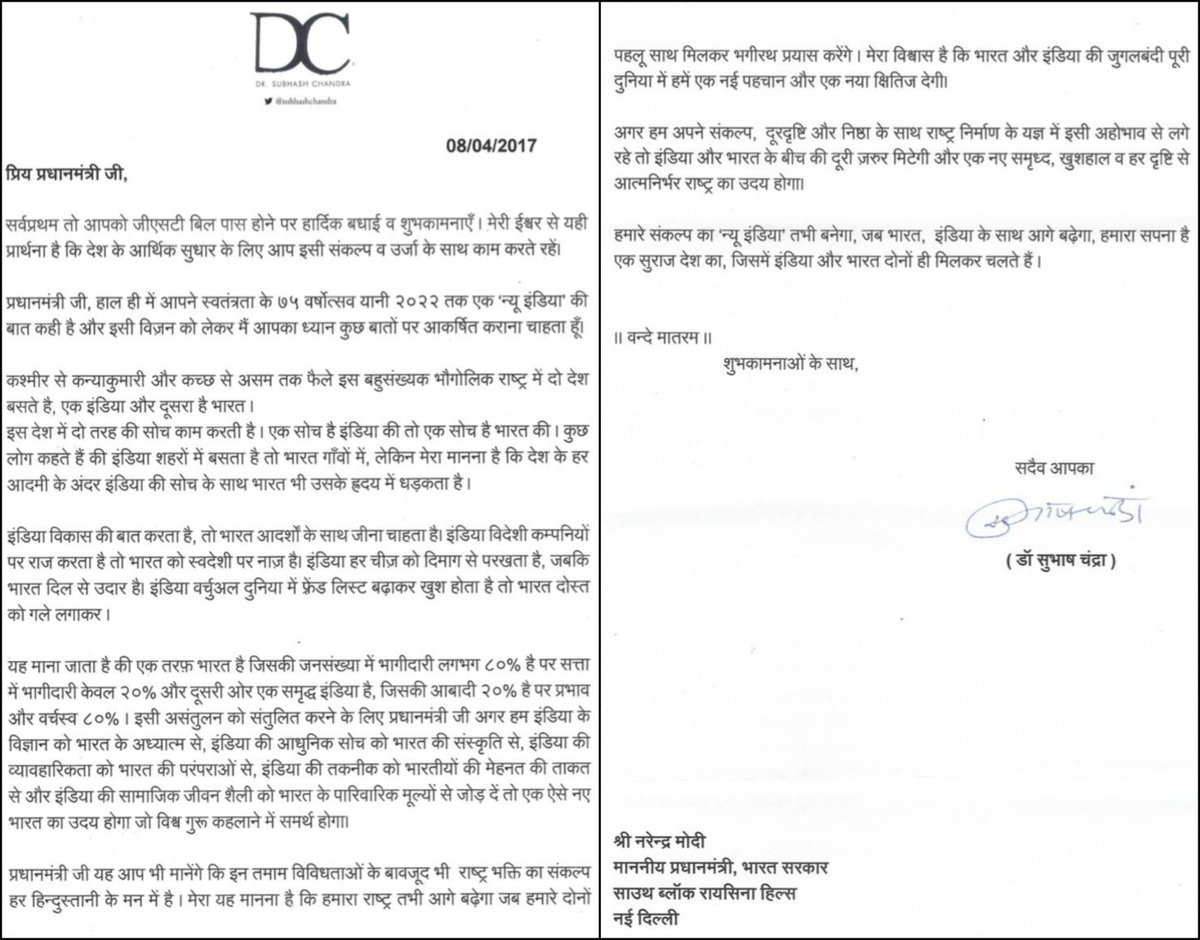 DC
DR. SUBHASH CHANDRA
@subhashchandra
08/04/2017
प्रिय प्रधानमंत्री जी,
सर्वप्रथम तो आपको जीएसटी बिल पास होने पर हार्दिक बधाई व शुभकामनाएँ । मेरी ईश्वर से यही
प्रार्थना है कि देश के आर्थिक सुधार के लिए आप इसी संकल्प व उर्जा के साथ काम करते रहें।
प्रधानमंत्री जी, हाल ही में आपने स्वतंत्रता के ७५ वर्षोत्सव यानी २०२२ तक एक 'न्यू इंडिया' की
बात कही है और इसी विज़न को लेकर मैं आपका ध्यान कुछ बातों पर आकर्षित कराना चाहता हूँ।
कश्मीर से कन्याकुमारी और कच्छ से असम तक फैले इस बहुसंख्यक भौगोलिक राष्ट्र में दो देश
बसते है, एक इंडिया और दूसरा है भारत ।
इस देश में दो तरह की सोच काम करती है । एक सोच है इंडिया की तो एक सोच है भारत की । कुछ
लोग कहते हैं की इंडिया शहरों में बसता है तो भारत गाँवों में, लेकिन मेरा मानना है कि देश के हर
आदमी के अंदर इंडिया की सोच के साथ भारत भी उसके ह्रदय में धड़कता है ।
इंडिया विकास की बात करता है, तो भारत आदर्शों के साथ जीना चाहता है। इंडिया विदेशी कम्पनियों
पर राज करता है तो भारत को स्वदेशी पर नाज़ है। इंडिया हर चीज़ को दिमाग से परखता है, जबकि
भारत दिल से उदार है। इंडिया वर्चुअल दुनिया में फ़्रेंड लिस्ट बढ़ाकर खुश होता है तो भारत दोस्त
को गले लगाकर ।
यह माना जाता है की एक तरफ़ भारत है जिसकी जनसंख्या में भागीदारी लगभग ८०% है पर सत्ता
में भागीदारी केवल २०% और दूसरी ओर एक समृद्ध इंडिया है, जिसकी आबादी २०% है पर प्रभाव
और वर्चस्व ८०% । इसी असंतुलन को संतुलित करने के लिए प्रधानमंत्री जी अगर हम इंडिया के
विज्ञान को भारत के अध्यात्म से, इंडिया की आधुनिक सोच को भारत की संस्कृति से, इंडिया की
व्यावहारिकता को भारत की परंपराओं से, इंडिया की तकनीक को भारतीयों की मेहनत की ताकत
से और इंडिया की सामाजिक जीवन शैली को भारत के पारिवारिक मूल्यों से जोड़ दें तो एक ऐसे नए
भारत का उदय होगा जो विश्व गुरू कहलाने में समर्थ होगा।
प्रधानमंत्री जी यह आप भी मानेंगे कि इन तमाम विविधताओं के बावजूद भी राष्ट्र भक्ति का संकल्प
हर हिन्दुस्तानी के मन में है । मेरा यह मानना है कि हमारा राष्ट्र तभी आगे बढ़ेगा जब हमारे दोनों
पहलू साथ मिलकर भगीरथ प्रयास करेंगे । मेरा विश्वास है कि भारत और इंडिया की जुगलबंदी पूरी
दुनिया में हमें एक नई पहचान और एक नया क्षितिज देगी।
अगर हम अपने संकल्प, दूरदृष्टि और निष्ठा के साथ राष्ट्र निर्माण के यज्ञ में इसी अहोभाव से लगे
रहे तो इंडिया और भारत के बीच की दूरी ज़रुर मिटेगी और एक नए समृध्द, खुशहाल व हर दृष्टि से
आत्मनिर्भर राष्ट्र का उदय होगा।
हमारे संकल्प का 'न्यू इंडिया' तभी बनेगा, जब भारत, इंडिया के साथ आगे बढ़ेगा, हमारा सपना है
एक सुराज देश का, जिसमें इंडिया और भारत दोनों ही मिलकर चलते हैं ।
॥ वन्दे मातरम ॥
शुभकामनाओं के साथ,
सदैव आपका
( डॉ सुभाष चंद्रा )
श्री नरेन्द्र मोदी
माननीय प्रधानमंत्री, भारत सरकार
साउथ ब्लॉक रायसिना हिल्स
नई दिल्ली